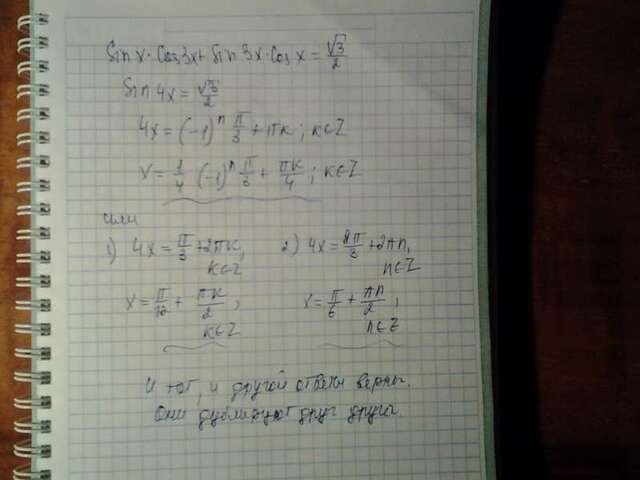 Sin x · Cos 3x + Sin 3x · Cos x = √3/2
Sin 4x = √3/2
4x = (-1)ⁿ π/3 + πk ; k∈Z
x = 1/4 · (-1)ⁿ π/3 + πk/4 ; k∈Z
или
1) 4x = π/3 + 2πk, 2) 4x = 2π/3 + 2πn,
k∈Z n∈Z
x = π/12 + πk/2 ; x = π/6 + πn/2 ;
k∈Z n∈Z
И тот, и другой ответы верны.
Они дублируют друг друга